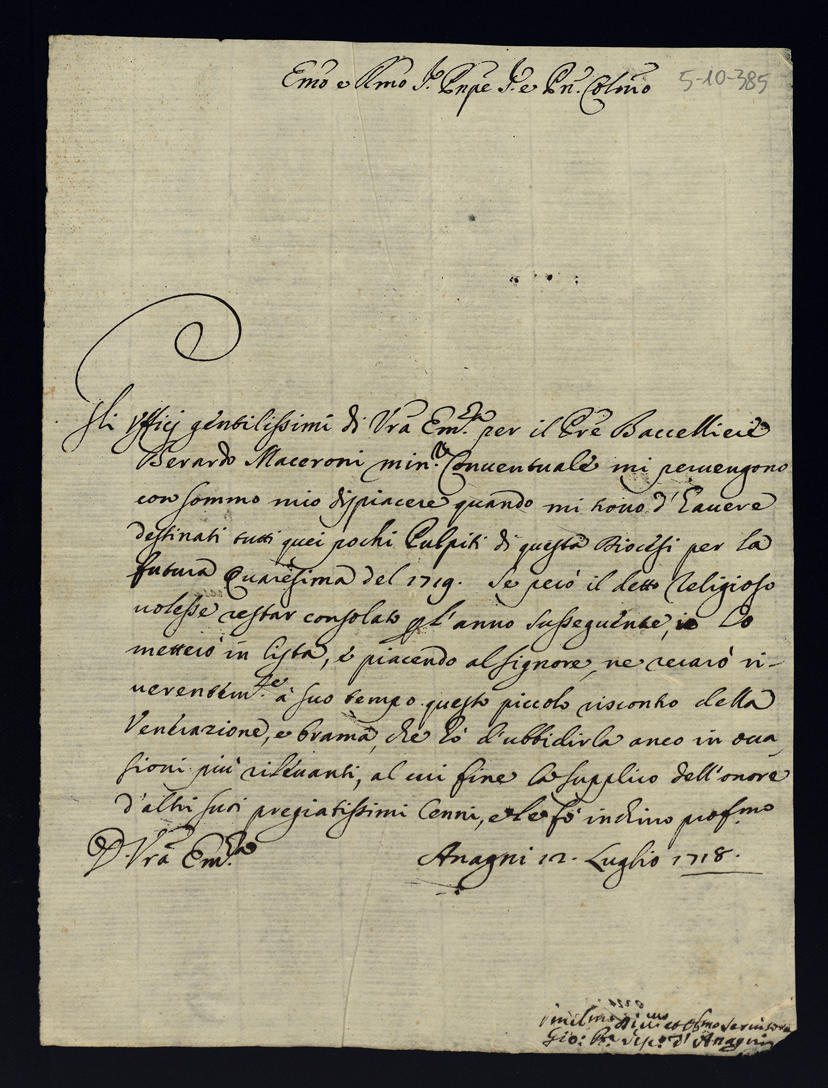 Emo e Rmo Sr Pnpe Sr e Pn. Colmo
5-10-385
Gli Vfficj gentilissimi di Vra Em.za per il Pre Baccelliere
Berardo Maceroni min.re Conventuale mi pervengono
con sommo mio dispiacere quando mi trovo d'havere
destinati tutti quei pochi Pulpiti di questa Diocesi per la
futura Quaresima del 1719. Se però il detto Religioso
volesse restar consolato p l'anno susseguente, io lo
metterò in lista, e piacendo al Signore, ne recarò ri-
verentem.te à suo tempo questo piccolo riscontro della
Venerazione, e brama, che hò d'ubbidirla anco in occa
sioni più rilevanti, al cui fine la supplico dell'onore
d'altri suoi pregiatissimi Cenni, e le fò inchino prof.mo
D. Vra Em.za
Anagni 12. Luglio 1718.
Vmilmo Divmo et Obmo Servitore
Gio: Bta Vesc.o d'Anagni